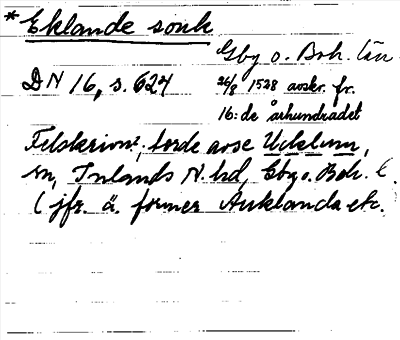 * Eklande sonk
Gbg o. Boh. län
DN 16, s. 624
26/8 1528 avskr. fr.
16:de århundradet
Felskrivn?, torde avse Ucklum,
sn, Inlands N. hd, Gbg o. Boh. l.
(jfr. ä. former Auklanda etc.